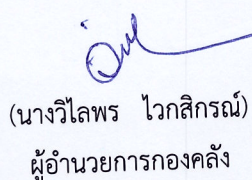 (นางวิไลพร ไวกสิกรณ์)
ผู้อำนวยการกองคลัง